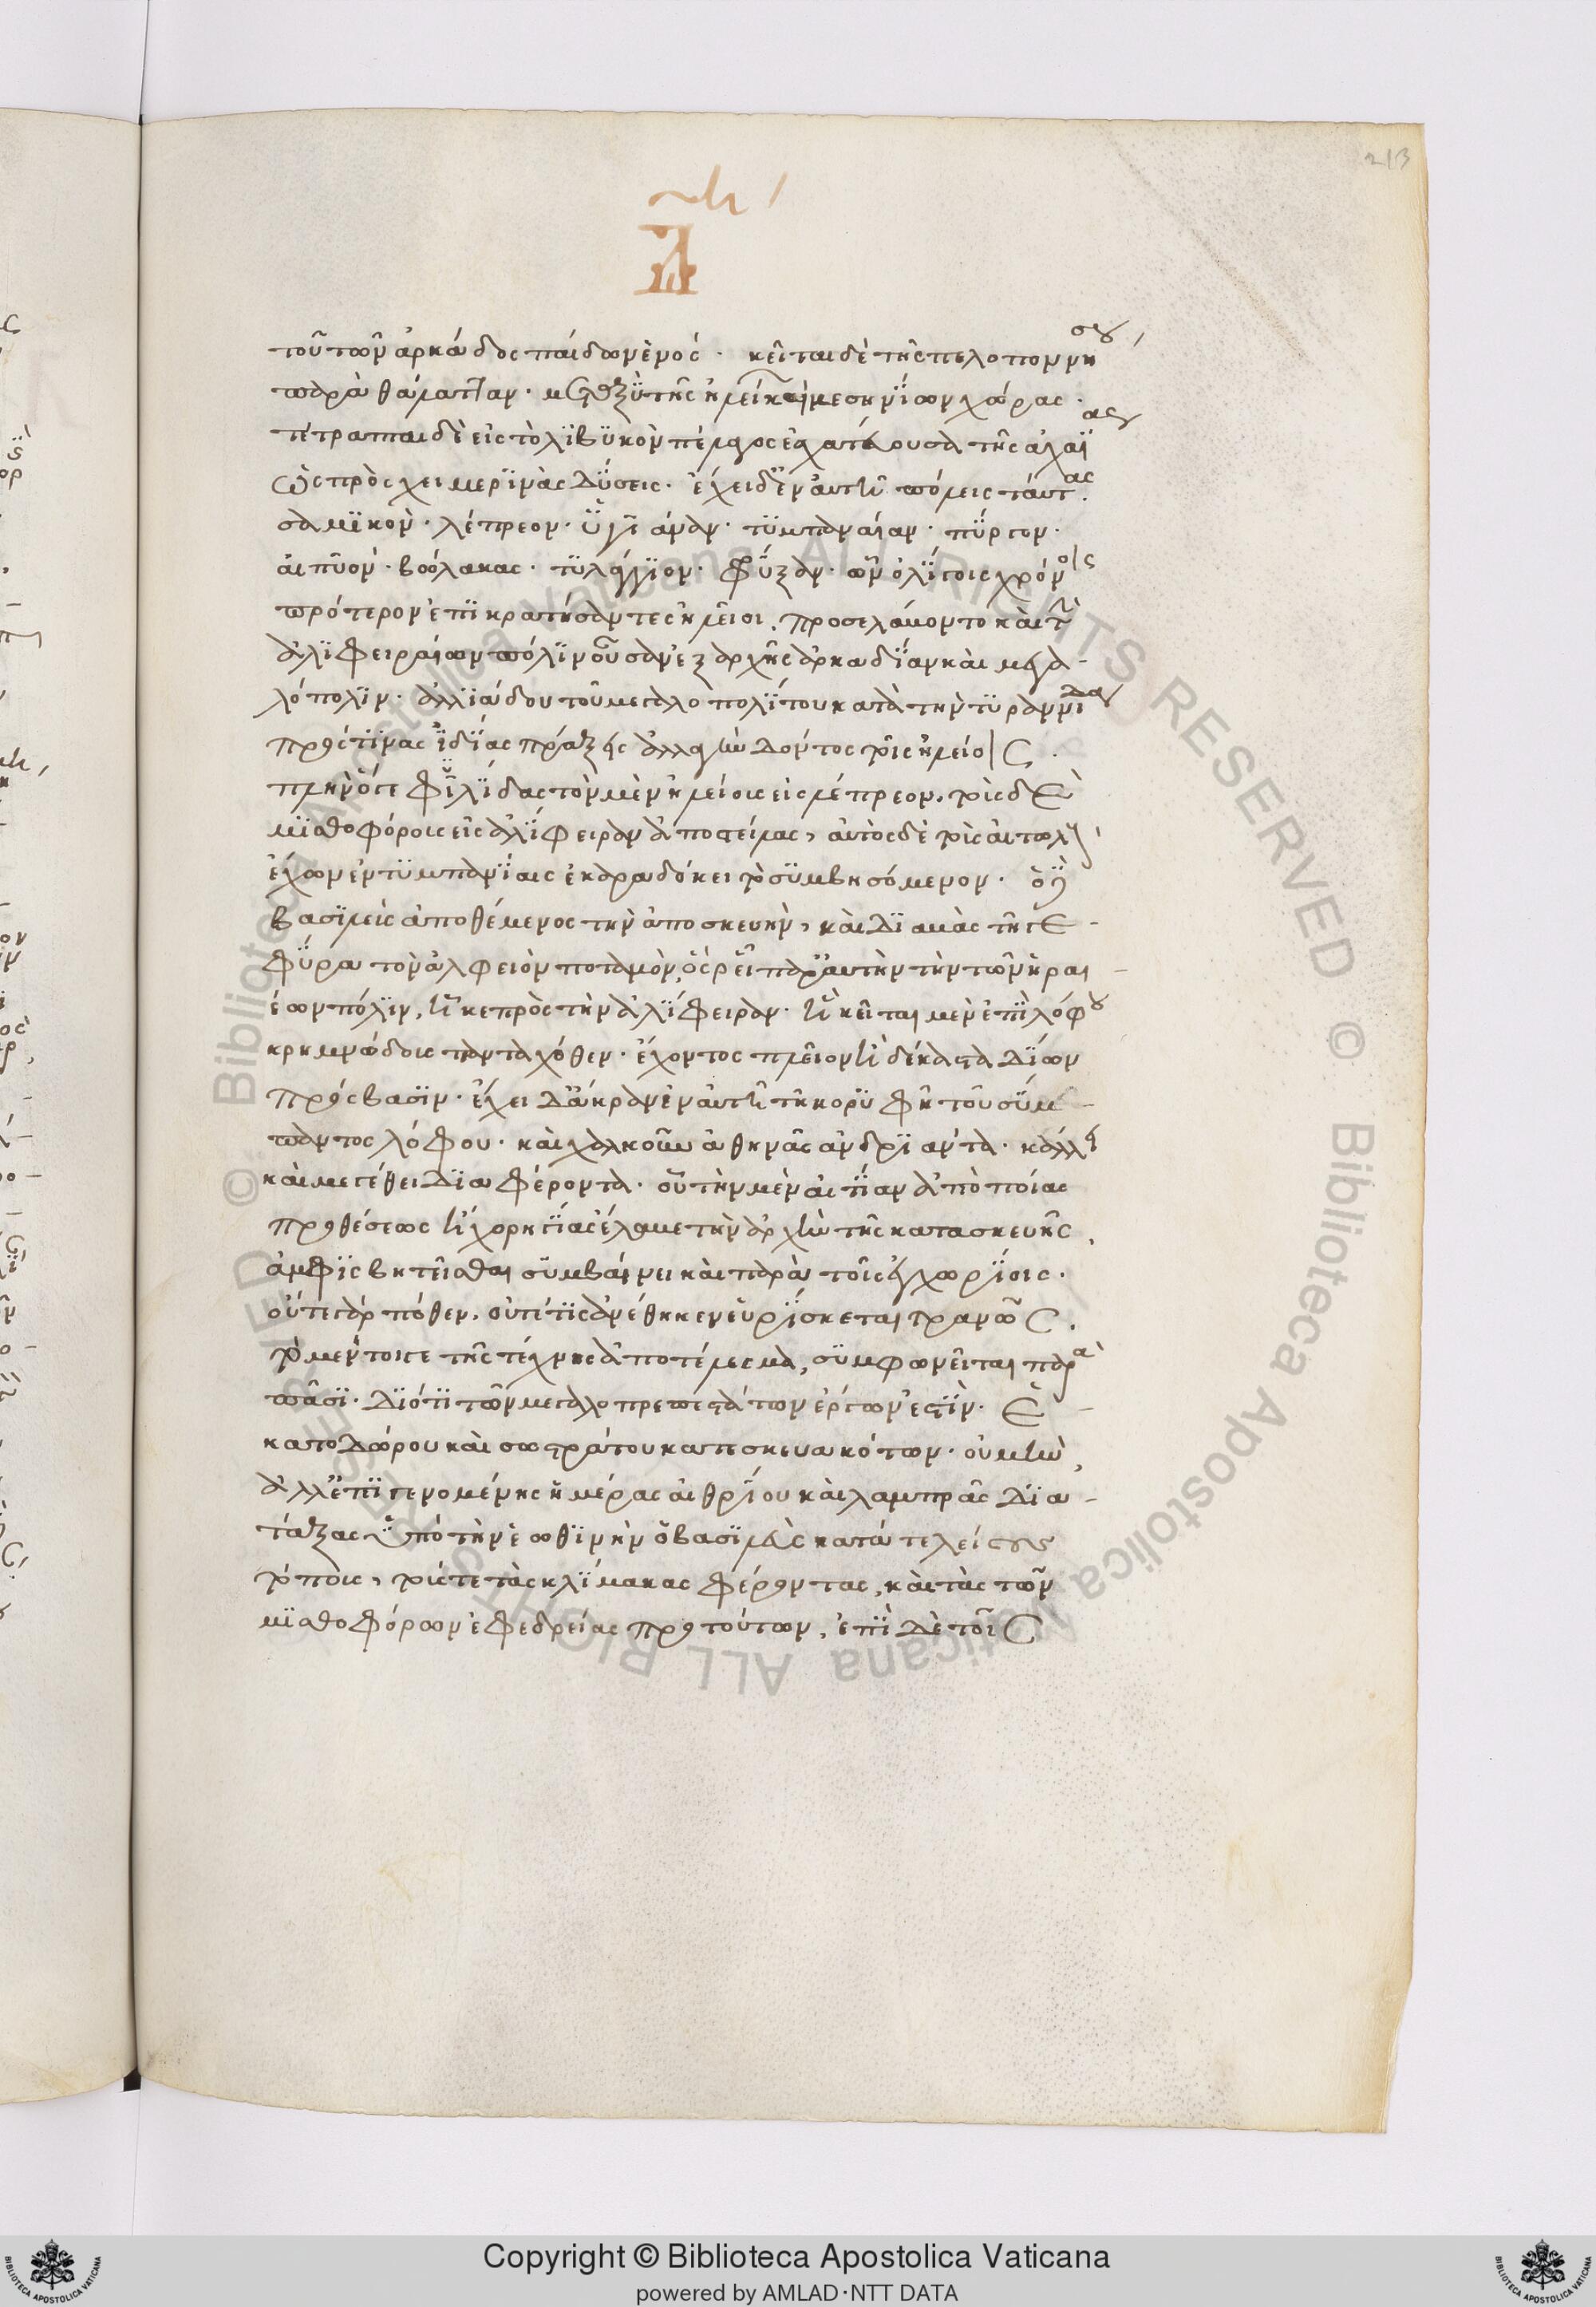 213
τοῦ τῶν ἀρκάδος παίδων ἑνός· κεῖται δὲ τῆς πελοποννήσου
παρὰ θάλατταν· μεταξὺ τῆς ἠλείας καὶ μεσηνίων χώρας·
τέτραπται δὲ εἰς τὸ λιβυκὸν πέλαγος ἐσχατεύουσα τῆς ἀχαΐας
ὡς πρὸς χειμερινὰς δύσεις· ἔχει δ' ἐν αὐτῆ πόλεις ταύτας·
σαμικόν· λέπρεον· ὕπαναν· τυμπαναίαν· πύργον·
αἴπυον· βώλακας· τυλάγγιον· φύξαν· ὧν ὀλίγοις χρόνοις
πρότερον ἐπικρατήσαντες ἠλεῖοι, προσελάβοντο καὶ τὴν
ἀλιφειραίων πόλιν οὖσαν ἐξ ἀρχῆς ἀρκαδίαν καὶ μεγα-
λόπολιν· ἀλλιάδου τοῦ μεγαλοπολίτου κατὰ τὴν τυραννίδα
πρός τινας ἰδίας πράξεις ἀλλαγὴν δόντος τοῖς ἠλείοις.
πλὴν ὅγε φιλίδας τοὺς μὲν ἠλείους εἰς λέπρεον, τοὺς δὲ
μισθοφόρους εἰς ἀλίφειραν ἀποστείλας, αὐτὸς δὲ τοὺς αἰτωλοὺς
ἔχων ἐν τυμπανίαις ἐκαραδόκει τὸ συμβησόμενον· ὁ δὲ
βασιλεὺς ἀποθέμενος τὴν ἀποσκευὴν, καὶ διαβὰς τῆ γε-
φύρα τὸν ἀλφειὸν ποταμὸν, ὃς ῥεῖ παρ' αὐτὴν τὴν τῶν ἡραι-
έων πόλιν, ἧκε πρὸς τὴν ἀλίφειραν· ἣ κεῖται μὲν ἐπὶ λόφου
κρημνώδους πανταχόθεν· ἔχοντος πλεῖον ἢ δέκα σταδίων
πρόσβασιν· ἔχει δ' ἄκραν ἐν αὐτῆ τῆ κορυφῆ τοῦ σύμ-
παντος λόφου· καὶ χαλκοῦν ἀθηνᾶς ἀνδριάντα· κάλλει
καὶ μεγέθει διαφέροντα· οὗ τὴν μὲν αἰτίαν ἀπὸ ποίας
προθέσεως ἢ χορηγίας ἔλαβε τὴν ἀρχὴν τῆς κατασκευῆς,
ἀμφισβητεῖσθαι συμβαίνει καὶ παρὰ τοῖς ἐγχωρίοις·
οὔτε γὰρ πόθεν, οὔτε τίς ἀνέθηκεν εὑρίσκεται τρανῶς.
τὸ μέντοιγε τῆς τέχνης ἀποτέλεσμα, συμφωνεῖται παρὰ
πᾶσι· διότι τῶν μεγαλοπρεπεστάτων ἔργων ἐστίν· ἑ-
κατοδώρου καὶ σωστράτου κατεσκευακότων· οὐ μὴν
ἀλλ' ἐπιγενομένης ἡμέρας αἰθρίου καὶ λαμπρᾶς δια-
τάξας ὑπὸ τὴν ἑωθινὴν ὁ βασιλεὺς κατὰ πλείους
τόπους, τούς τε τὰς κλίμακας φέροντας, καὶ τὰς τῶν
μισθοφόρων ἐφεδρείας πρὸ τούτων, ἐπὶ δὲ τοῖς
Copyright © Biblioteca Apostolica Vaticana
powered by AMLAD·NTT DATA